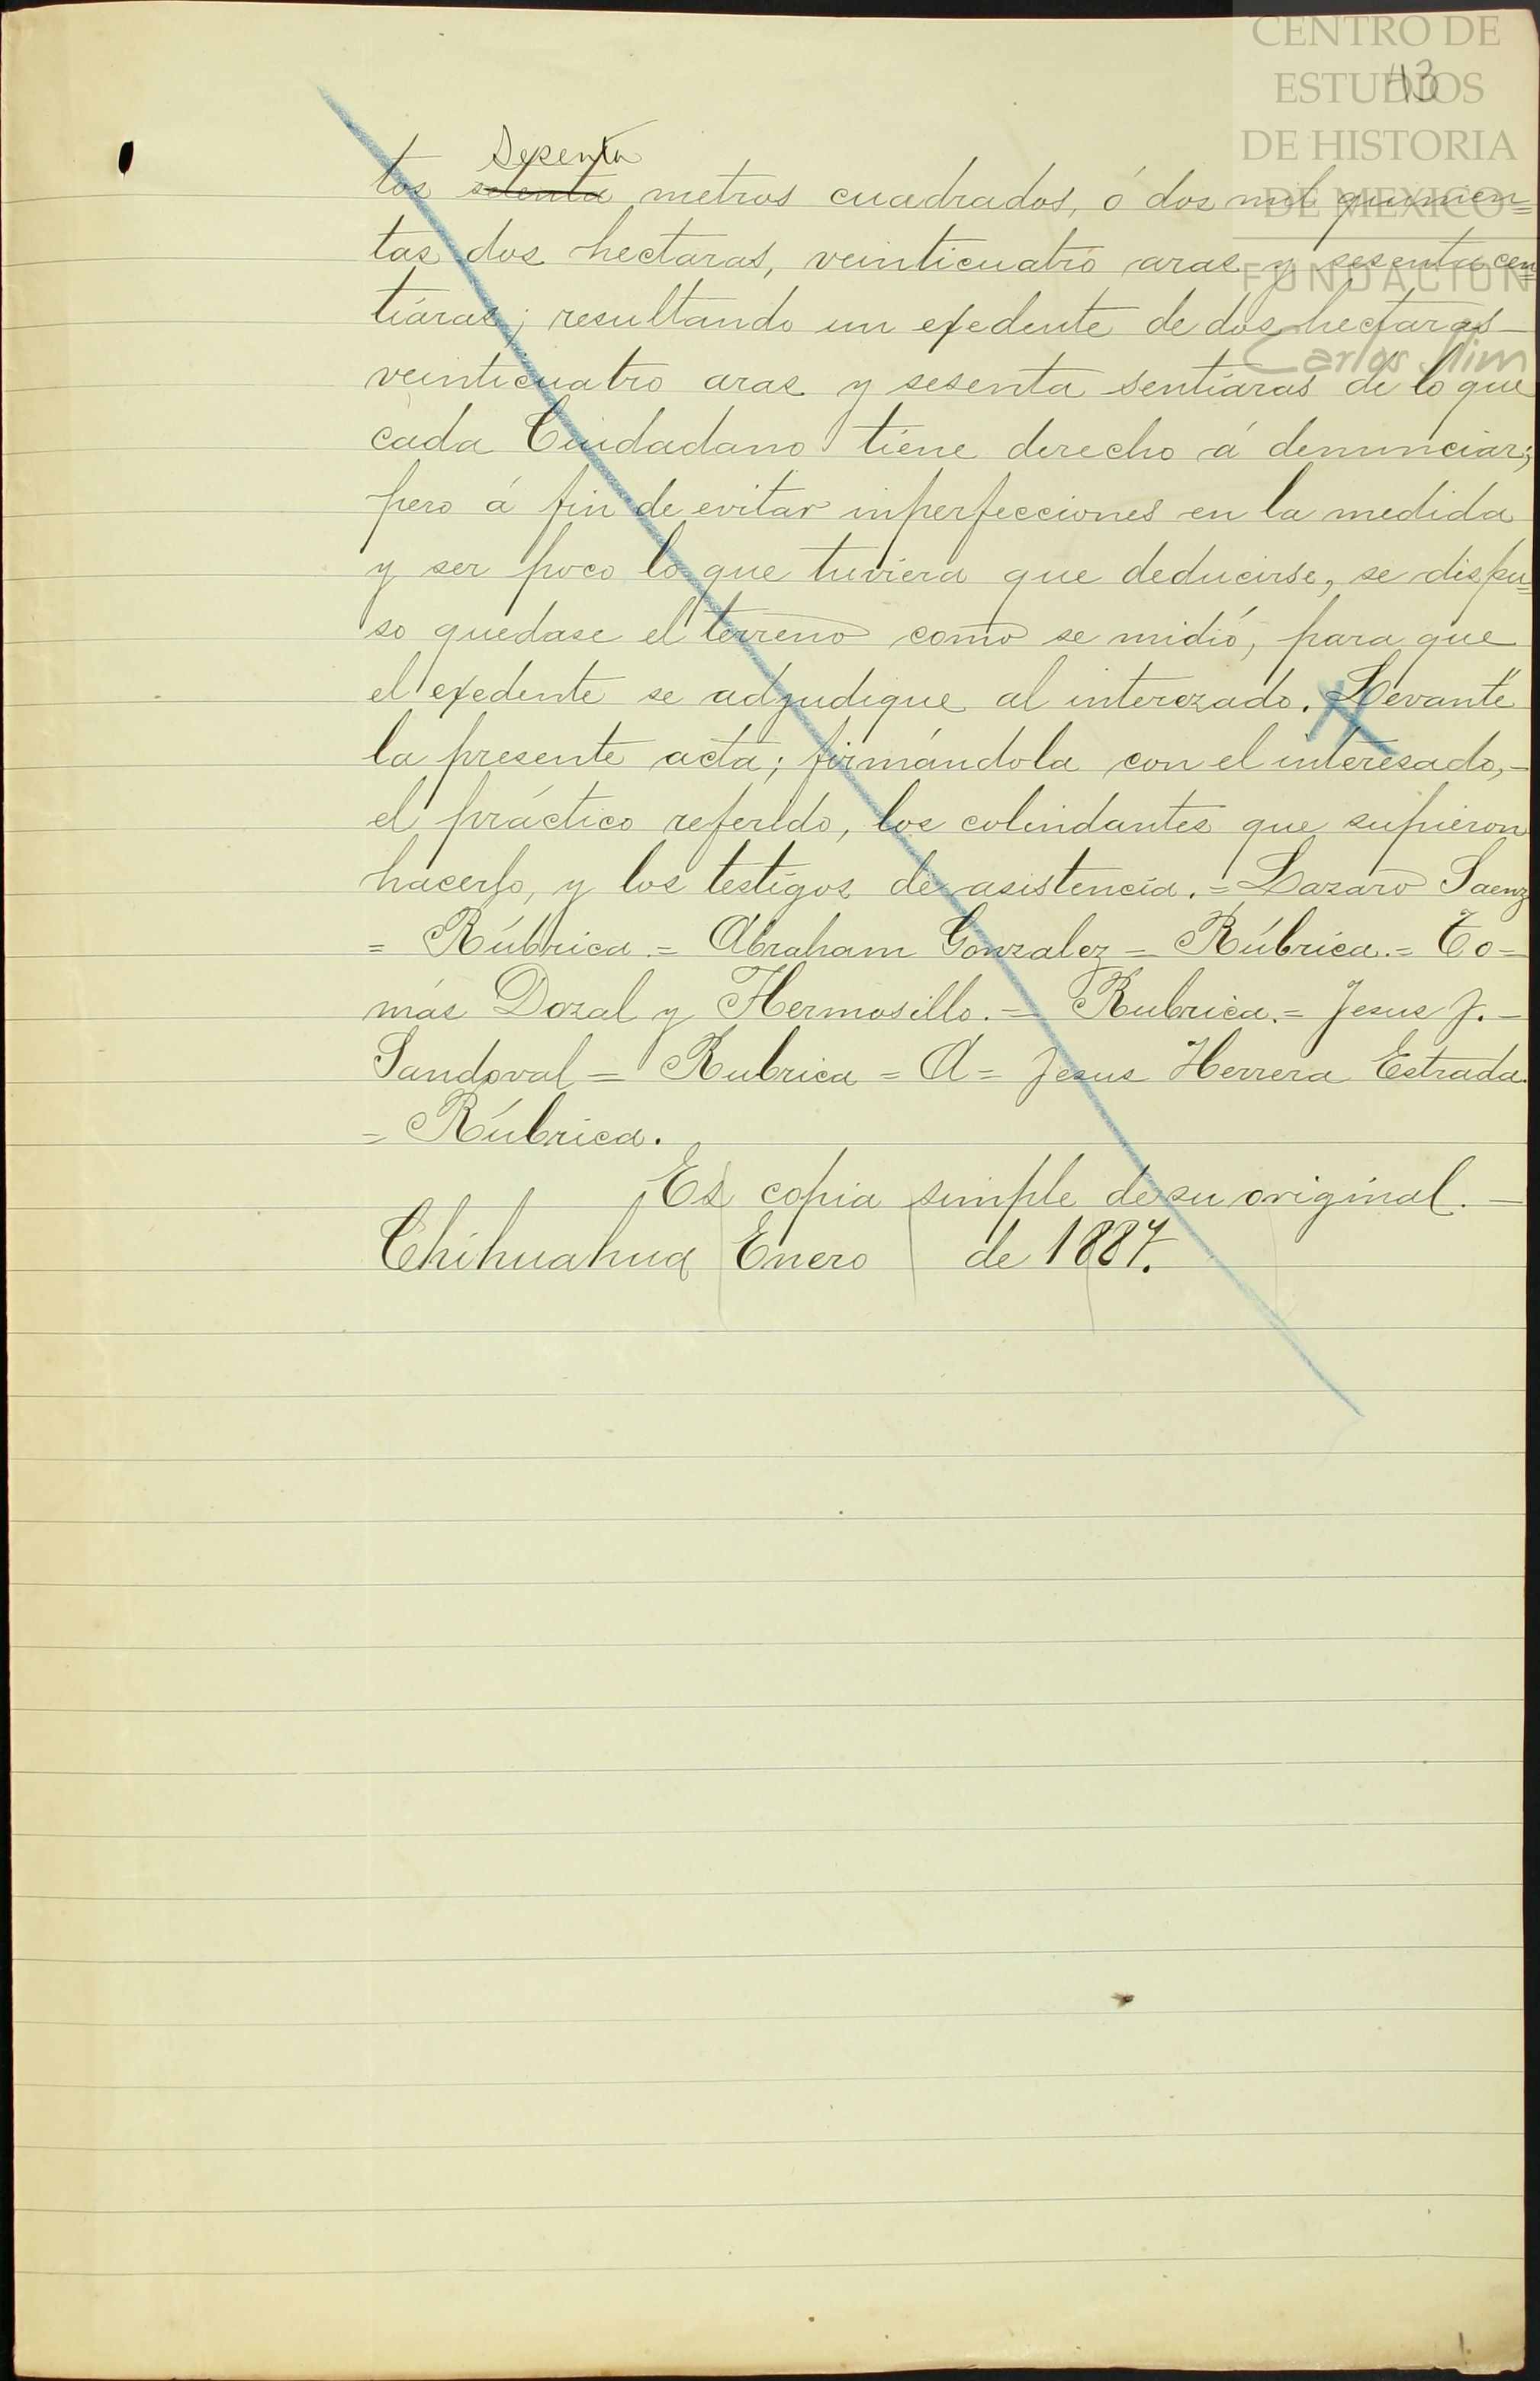 CENTRO DE
ESTUDIOS
DE HISTORIA
DE MEXICO
FUNDACION
Carlos Slim
43
Sesenta
tos setenta metros cuadrados, ó dos mil quinien=
tas dos hectaras, veinticuatro aras y sesenta cen=
tiáras; resultando un exedente de dos hectaras
veinticuatro aras y sesenta sentiaras de lo que
cada Ciudadano tiene derecho á denunciar;
pero á fin de evitar inperfecciones en la medida
y ser poco lo que tuviera que deducirse, se dispu=
so quedase el terreno como se midió, para que
el exedente se adjudique al interezado. Levante
la presente acta; firmándola con el interesado,-
el práctico referido, los colindantes que supieron
hacerlo, y los testigos de asistencia.= Lazaro Saenz
= Rúbrica.= Abraham Gonzalez = Rúbrica.= To=
más Dozal y Hermosillo.= Rubrica.= Jesus J.-
Sandoval = Rubrica = A = Jesus Herrera Estrada.
= Rúbrica.
Es copia simple de su original.-
Chihuahua Enero de 1887.